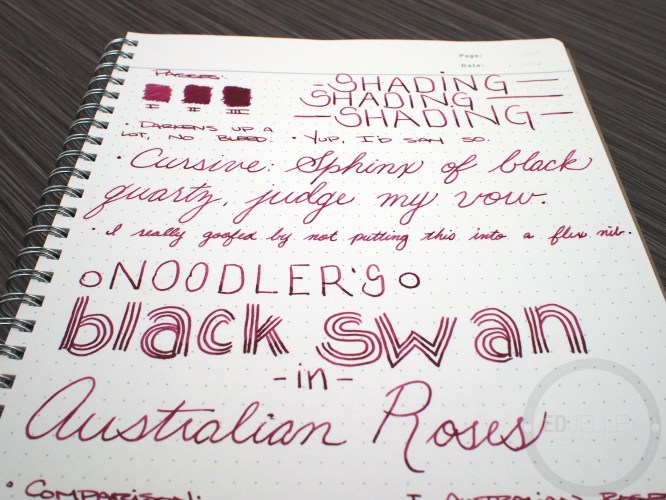 Page:
Date:
Passes:
I II III
SHADING
SHADING
SHADING
• Darkens up a
lot, no bleed.
• Yup, I'd say so.
• Cursive: Sphinx of black
quartz, judge my vow.
• I really goofed by not putting this into a flex nib.
NOODLER'S
black swan
-in-
Australian Roses
• Comparison:
I Australian Roses
ED JELLEY